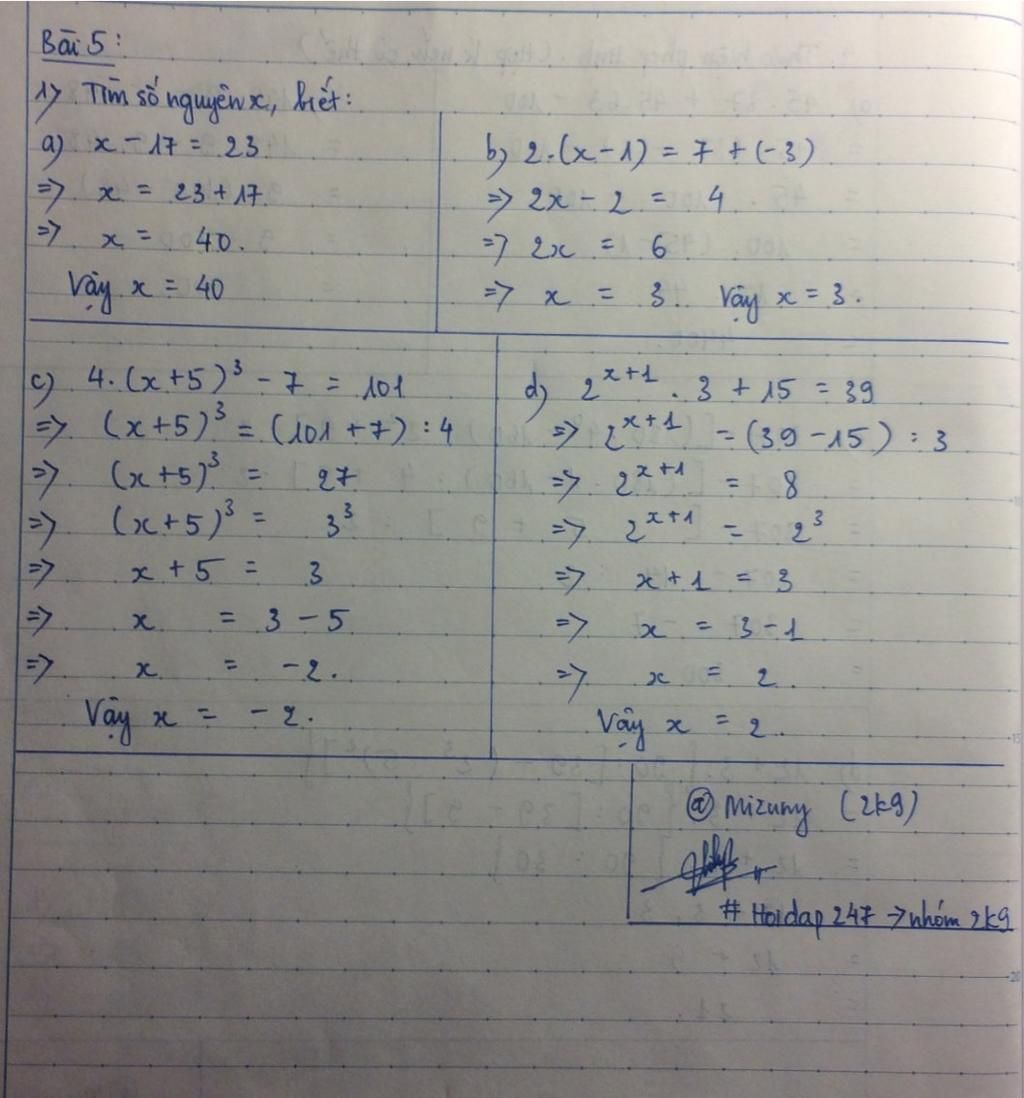 Bài 5:
1) Tìm số nguyên x, biết:
a) x - 17 = 23
=> x = 23 + 17
=> x = 40.
Vậy x = 40
b) 2.(x - 1) = 7 + (-3)
=> 2x - 2 = 4
=> 2x = 6
=> x = 3 Vậy x = 3.
c) 4.(x+5)³ - 7 = 101
=> (x+5)³ = (101 + 7) : 4
=> (x+5)³ = 27
=> (x+5)³ = 3³
=> x + 5 = 3
=> x = 3 - 5
=> x = -2.
Vậy x = -2.
d) 2^(x+1) . 3 + 15 = 39
=> 2^(x+1) = (39 - 15) : 3
=> 2^(x+1) = 8
=> 2^(x+1) = 2³
=> x+1 = 3
=> x = 3 - 1
=> x = 2
Vậy x = 2
@ Mizuny (2k9)
# Hoidap 247 → nhóm 2k9